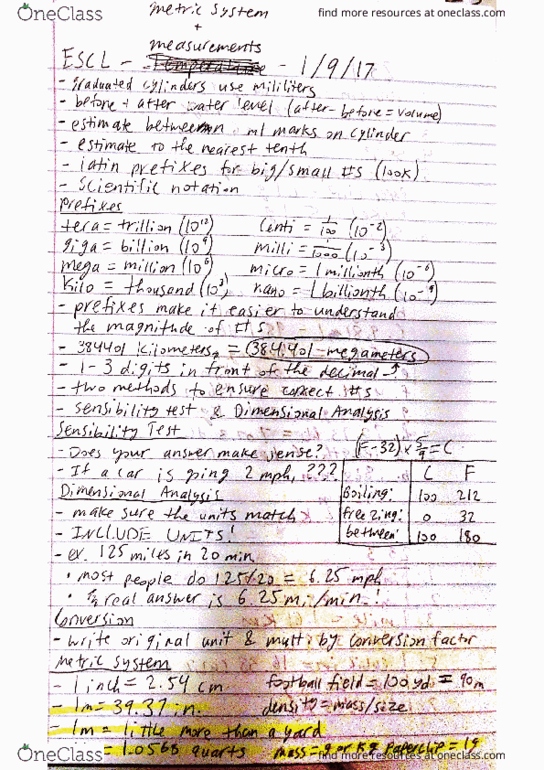 OneClass
find more resources at oneclass.com
metric System
+
measurements
ESCL - - 1/9/17
- graduated cylinders use mililiters
- before + after water level (after-before = volume)
- estimate between ml marks on cylinder
- estimate to the nearest tenth
- latin prefixes for big/small #s (100k)
- Scientific notation
Prefixes
tera = trillion (10^12) Centi = 1/100 (10^-2)
giga = billion (10^9) milli = 1/1000 (10^-3)
mega = million (10^6) micro = 1 millionth (10^-6)
kilo = thousand (10^3) nano = 1 billionth (10^-9)
- prefixes make it easier to understand
the magnitude of #s
- 384401 kilometers = 384.401 megameters
- 1-3 digits in front of the decimal ↑
- two methods to ensure correct #s
- sensibility test & Dimensional Analysis
Sensibility Test
- Does your answer make sense? (F-32) x 5/9 = C
- If a car is going 2 mph, ???
C F
Boiling: 100 212
freezing: 0 32
between: 100 180
Dimensional Analysis
- make sure the units match
- INCLUDE UNITS!
- ex. 125 miles in 20 min
• most people do 125/20 = 6.25 mph
• real answer is 6.25 mi/min!
Conversion
- write original unit & multi by conversion factor
metric System
- 1 inch = 2.54 cm football field = 100 yd = 90m
- 1m = 39.37 in. density = mass/size
- 1m = little more than a yard
= 1.0568 quarts mass = g or kg paperclip = 1g
OneClass
find more resources at oneclass.com